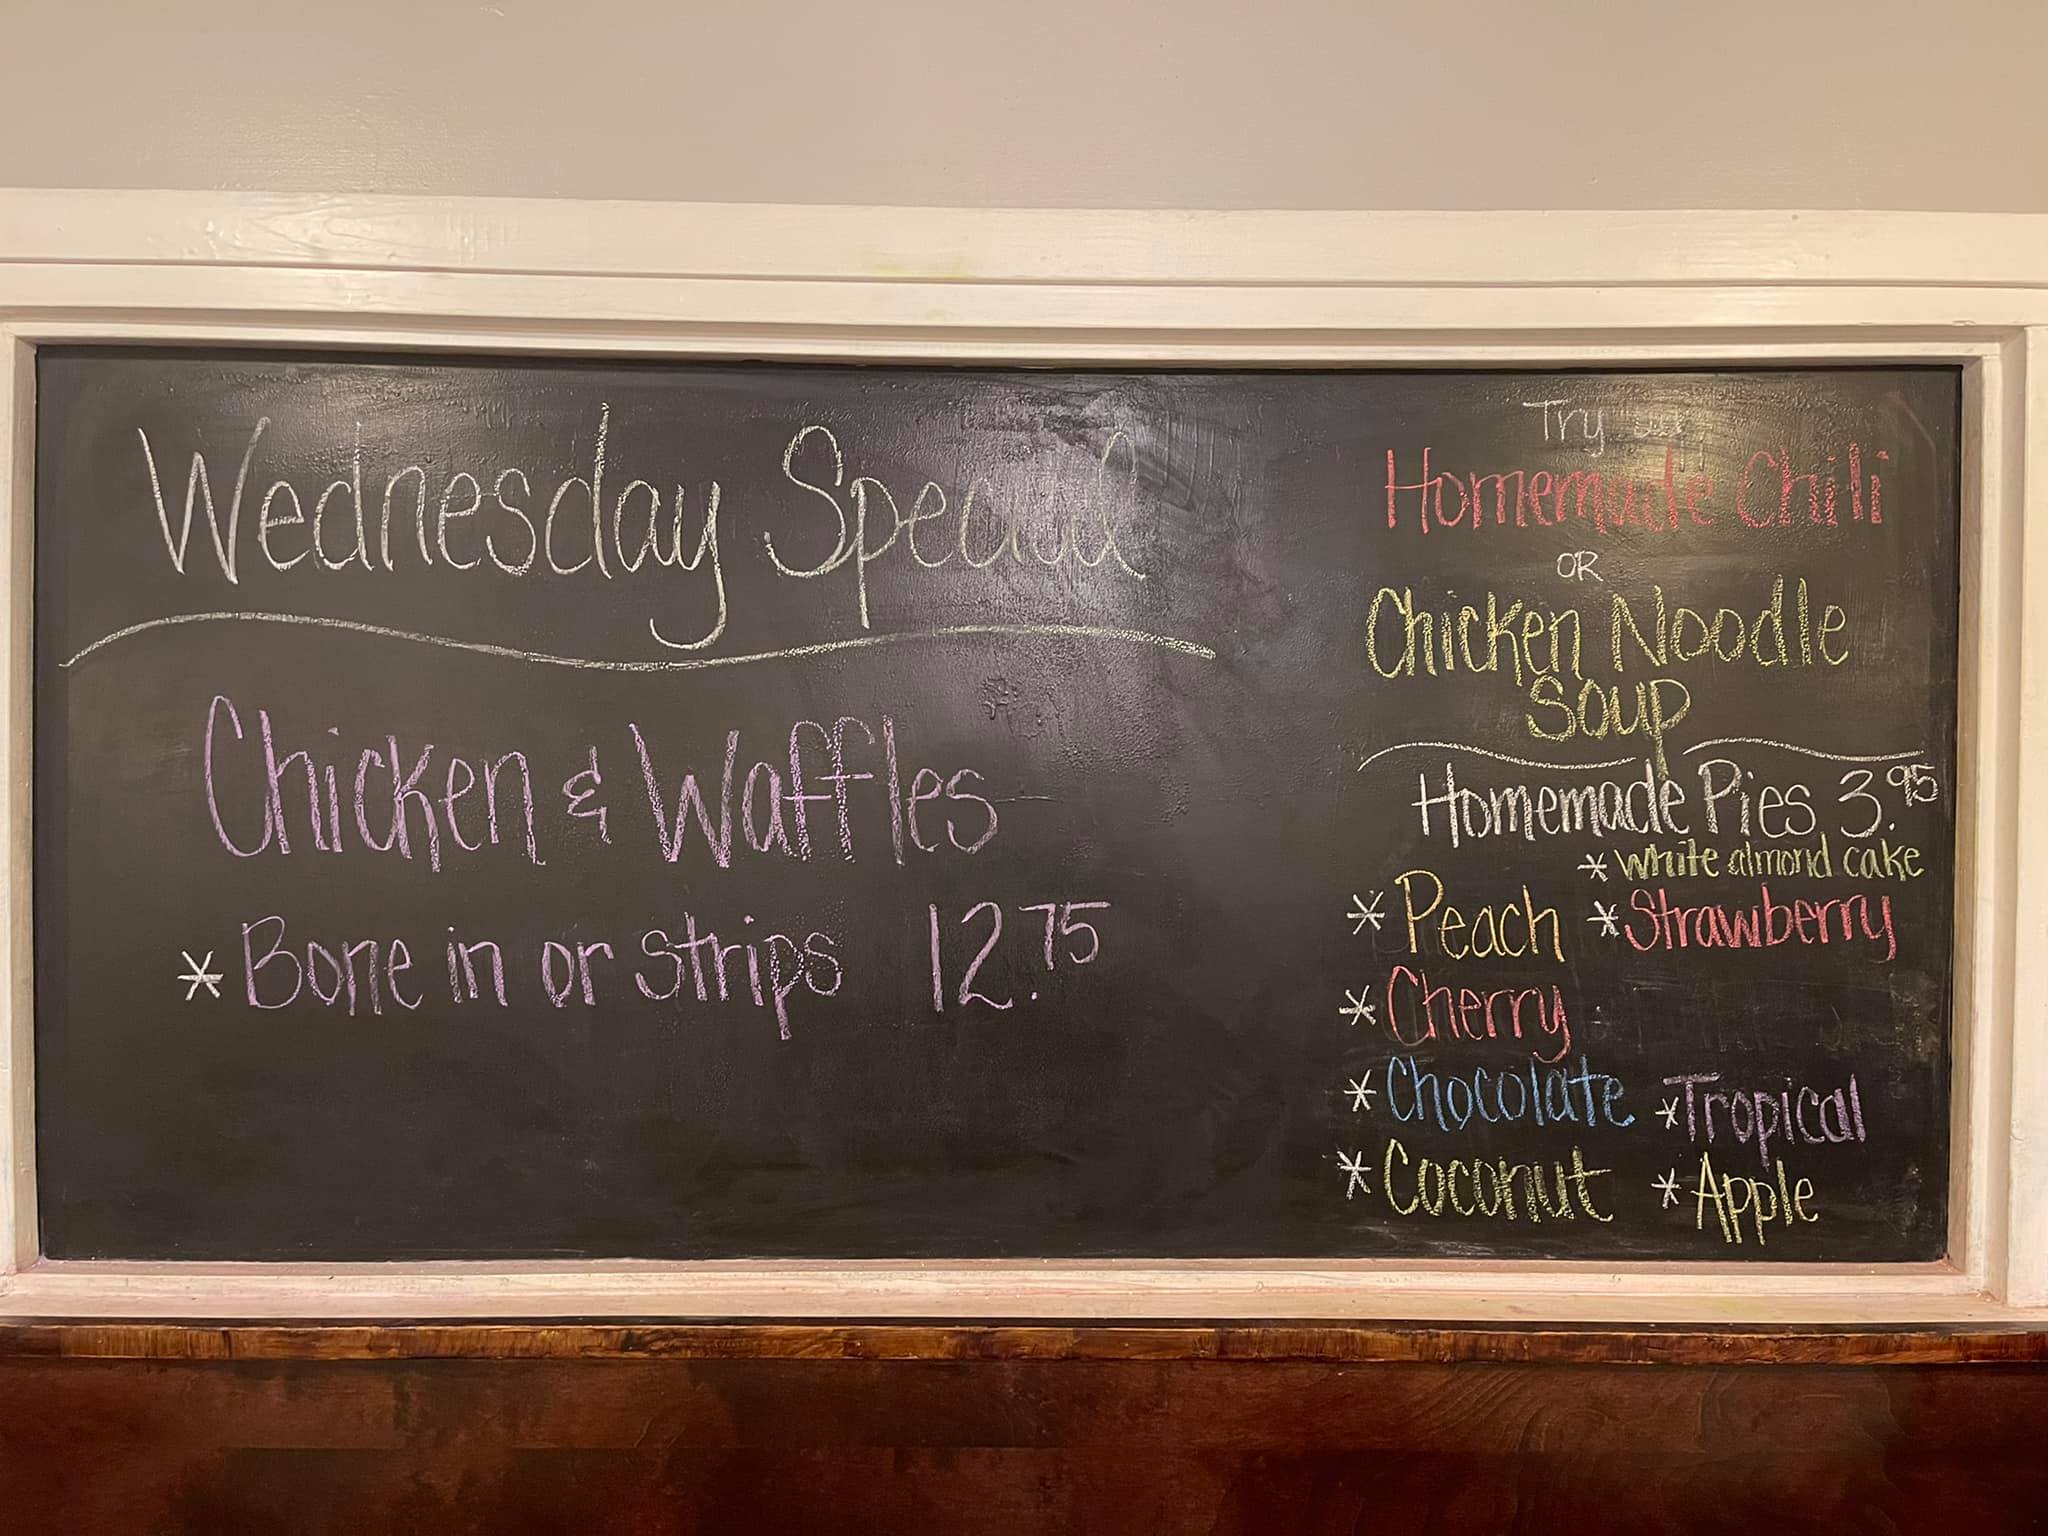 Wednesday Special
Chicken & Waffles
* Bone in or strips 12.75
Try our
Homemade Chili
OR
Chicken Noodle
Soup
Homemade Pies 3.95
* white almond cake
* Peach * Strawberry
* Cherry
* Chocolate * Tropical
* Coconut * Apple